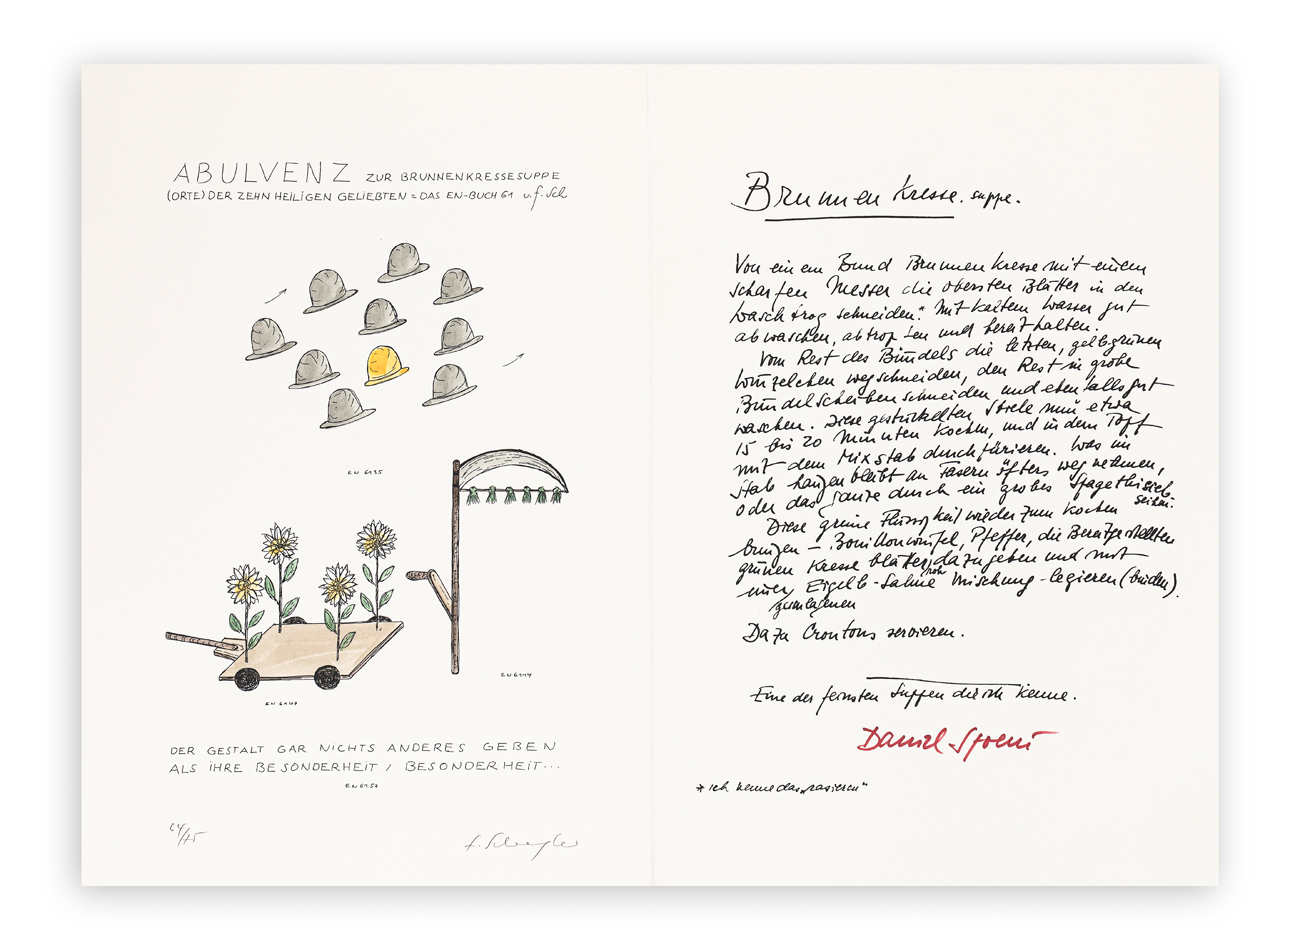 ABULVENZ ZUR BRUNNENKRESSESUPPE
(ORTE) DER ZEHN HEILIGEN GELIEBTEN = DAS EN-BUCH 61 u.f. Sch
EN 6135
EN 6114
EN 6147
DER GESTALT GAR NICHTS ANDERES GEBEN
ALS IHRE BESONDERHEIT / BESONDERHEIT...
EN 6150
64/75
Brunnenkresse.suppe.
Von einem Bund Brunnenkresse mit einem
scharfen Messer die obersten Blätter in den
waschtrog schneiden.* Mit kaltem Wasser gut
abwaschen, abtropfen und bereithalten.
Vom Rest des Bündels die letzten, gelbgrünen
Würzelchen wegschneiden, den Rest in grobe
Bündelscheiben schneiden und ebenfalls gut
waschen. Diese gestückelten Stiele nun etwa
15 bis 20 Minuten kochen, und in dem Topf
mit dem Mixstab durchpürieren. Was im
Stab hangen bleibt an Fasern öfters wegnehmen,
oder das ganze durch ein grobes Spagethisieb
seihen.
Diese grüne Flüssigkeit wieder zum Kochen
bringen – Bouillonwürfel, Pfeffer, die Bereitgestellten
grünen Kresseblätter dazugeben und mit
einer Eigelb-Sahne Mischung legieren (binden).
Dazu Croutons servieren.
Eine der feinsten Suppen die ich kenne.
Daniel Spoerri
* ich nenne das „rasieren"